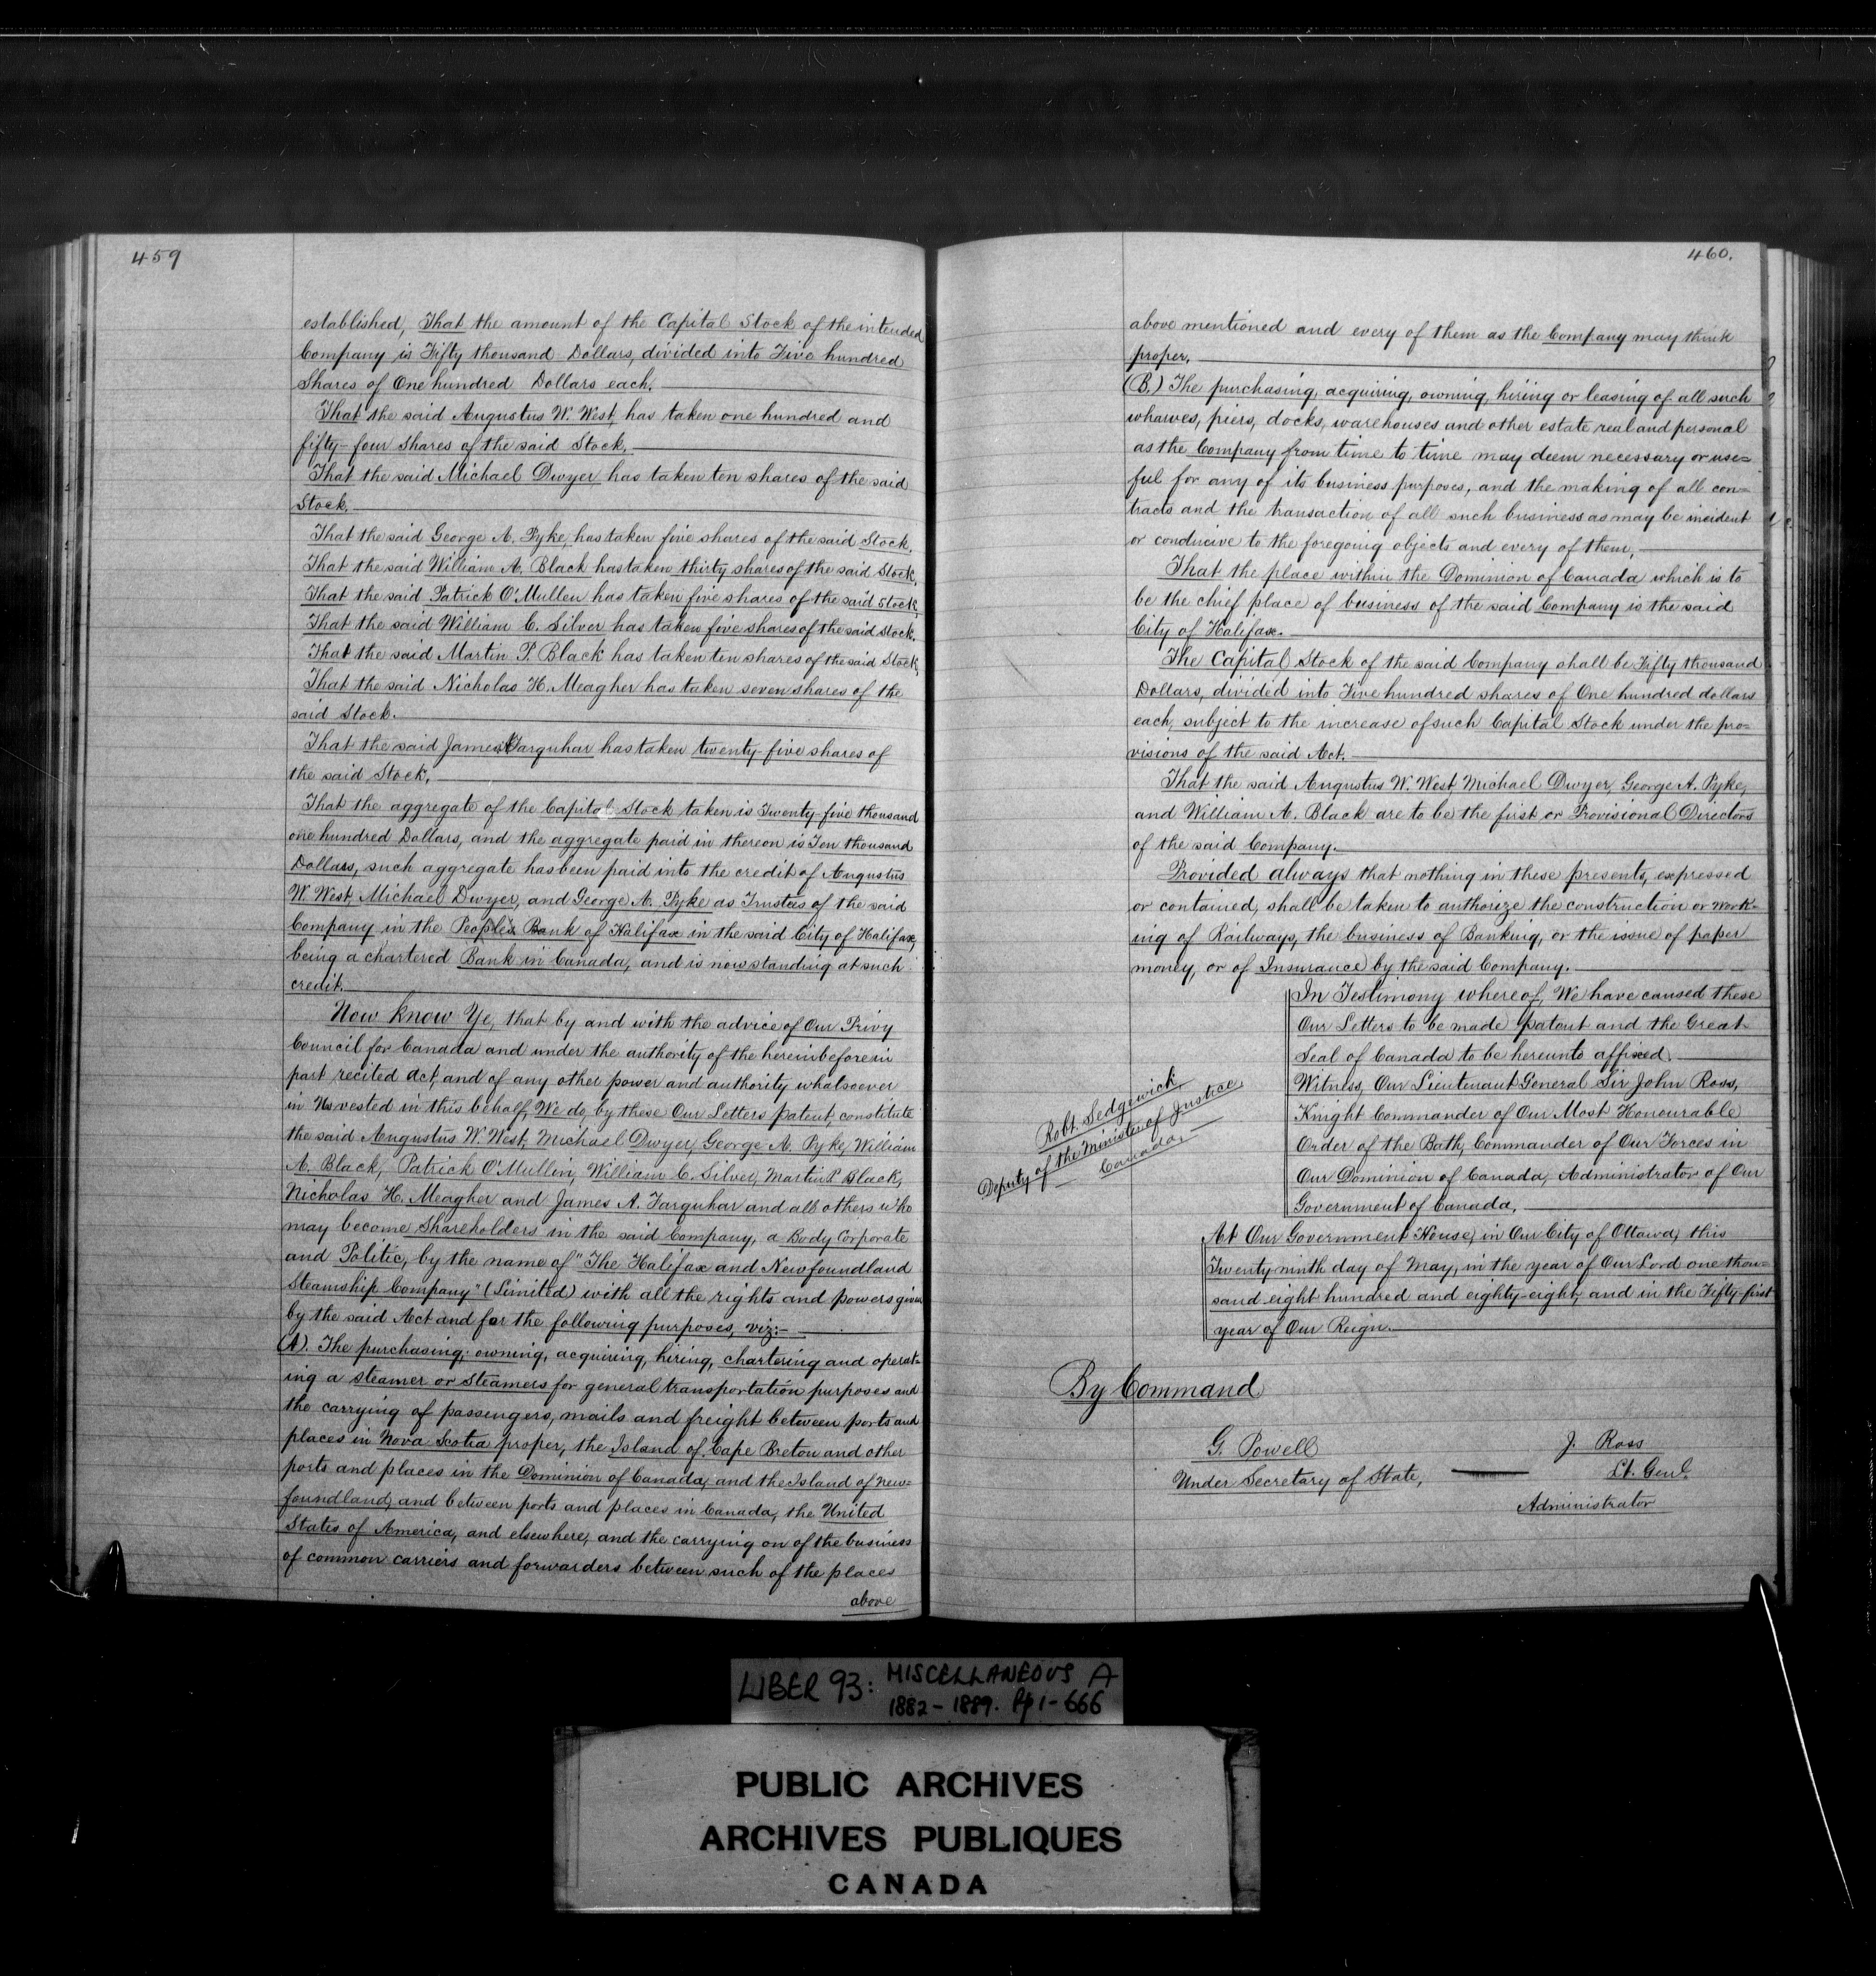 459
established, That the amount of the Capital Stock of the intended
Company is Fifty thousand Dollars, divided into Five hundred
Shares of One hundred Dollars each.
That the said Augustus W. West, has taken one hundred and
fifty-four shares of the said Stock.
That the said Michael Dwyer has taken ten shares of the said
Stock.
That the said George A. Pyke, has taken five shares of the said Stock.
That the said William A. Black has taken thirty shares of the said Stock.
That the said Patrick O'Mullen has taken five shares of the said Stock,
That the said William C. Silver has taken five shares of the said Stock.
That the said Martin P. Black has taken ten shares of the said Stock,
That the said Nicholas H. Meagher has taken seven shares of the
said Stock.
That the said James Farquhar has taken twenty-five shares of
the said Stock.
That the aggregate of the Capital Stock taken is Twenty-five thousand
one hundred Dollars, and the aggregate paid in thereon is Ten thousand
Dollars, such aggregate has been paid into the credit of Augustus
W. West, Michael Dwyer, and George A. Pyke as Trustees of the said
Company in the People's Bank of Halifax in the said City of Halifax,
being a chartered Bank in Canada, and is now standing at such
credit.
Now Know Ye, that by and with the advice of Our Privy
Council for Canada and under the authority of the hereinbefore in
part recited Act, and of any other power and authority whatsoever
in Us vested in this behalf, We do, by these Our Letters patent, constitute
the said Augustus W. West, Michael Dwyer, George A. Pyke, William
A. Black, Patrick O'Mullin, William C. Silver, Martin P. Black,
Nicholas H. Meagher and James A. Farquhar and all others who
may become Shareholders in the said Company, a Body Corporate
and Politic, by the name of "The Halifax and Newfoundland
Steamship Company" (Limited) with all the rights and powers given
by the said Act and for the following purposes, viz:-
(A). The purchasing, owning, acquiring, hiring, chartering and operat=
ing a steamer or Steamers for general transportation purposes and
the carrying of passengers, mails and freight between ports and
places in Nova Scotia proper, the Island of Cape Breton and other
ports and places in the Dominion of Canada, and the Island of New=
foundland, and between ports and places in Canada, the United
States of America, and elsewhere, and the carrying on of the business
of common carriers and forwarders between such of the places
above
460.
above mentioned and every of them as the Company may think
proper.
(B.) The purchasing, acquiring, owning, hiring or leasing of all such
wharves, piers, docks, warehouses and other estate real and personal
as the Company from time to time may deem necessary or use=
ful for any of its business purposes, and the making of all con=
tracts and the transaction of all such business as may be incident
or conducive to the foregoing objects and every of them.
That the place within the Dominion of Canada which is to
be the chief place of business of the said Company is the said
City of Halifax.
The Capital Stock of the said Company shall be Fifty thousand
Dollars, divided into Five hundred shares of One hundred dollars
each, subject to the increase of such Capital Stock under the pro=
visions of the said Act.
That the said Augustus W. West, Michael Dwyer, George A. Pyke,
and William A. Black are to be the first or Provisional Directors
of the said Company.
Provided always that nothing in these presents, expressed
or contained, shall be taken to authorize the construction or work=
ing of Railways, the business of Banking, or the issue of paper
money, or of Insurance by the said Company.
In Testimony whereof, We have caused these
Our Letters to be made Patent and the Great
Seal of Canada to be hereunto affixed.
Witness, Our Lieutenant General Sir John Ross,
Knight Commander of Our Most Honourable
Order of the Bath, Commander of Our Forces in
Our Dominion of Canada, Administrator of Our
Government of Canada.
Robt. Sedgewick
Deputy of the Minister of Justice
Canada.
At Our Government House, in Our City of Ottawa, this
Twenty ninth day of May, in the year of Our Lord one thou=
sand eight hundred and eighty-eight, and in the Fifty-first
year of Our Reign.
By Command
G. Powell
Under Secretary of State,
J. Ross
Lt. Genl.
Administrator
LIBER 93: MISCELLANEOUS A
1882-1889. Pp 1-666
PUBLIC ARCHIVES
ARCHIVES PUBLIQUES
CANADA